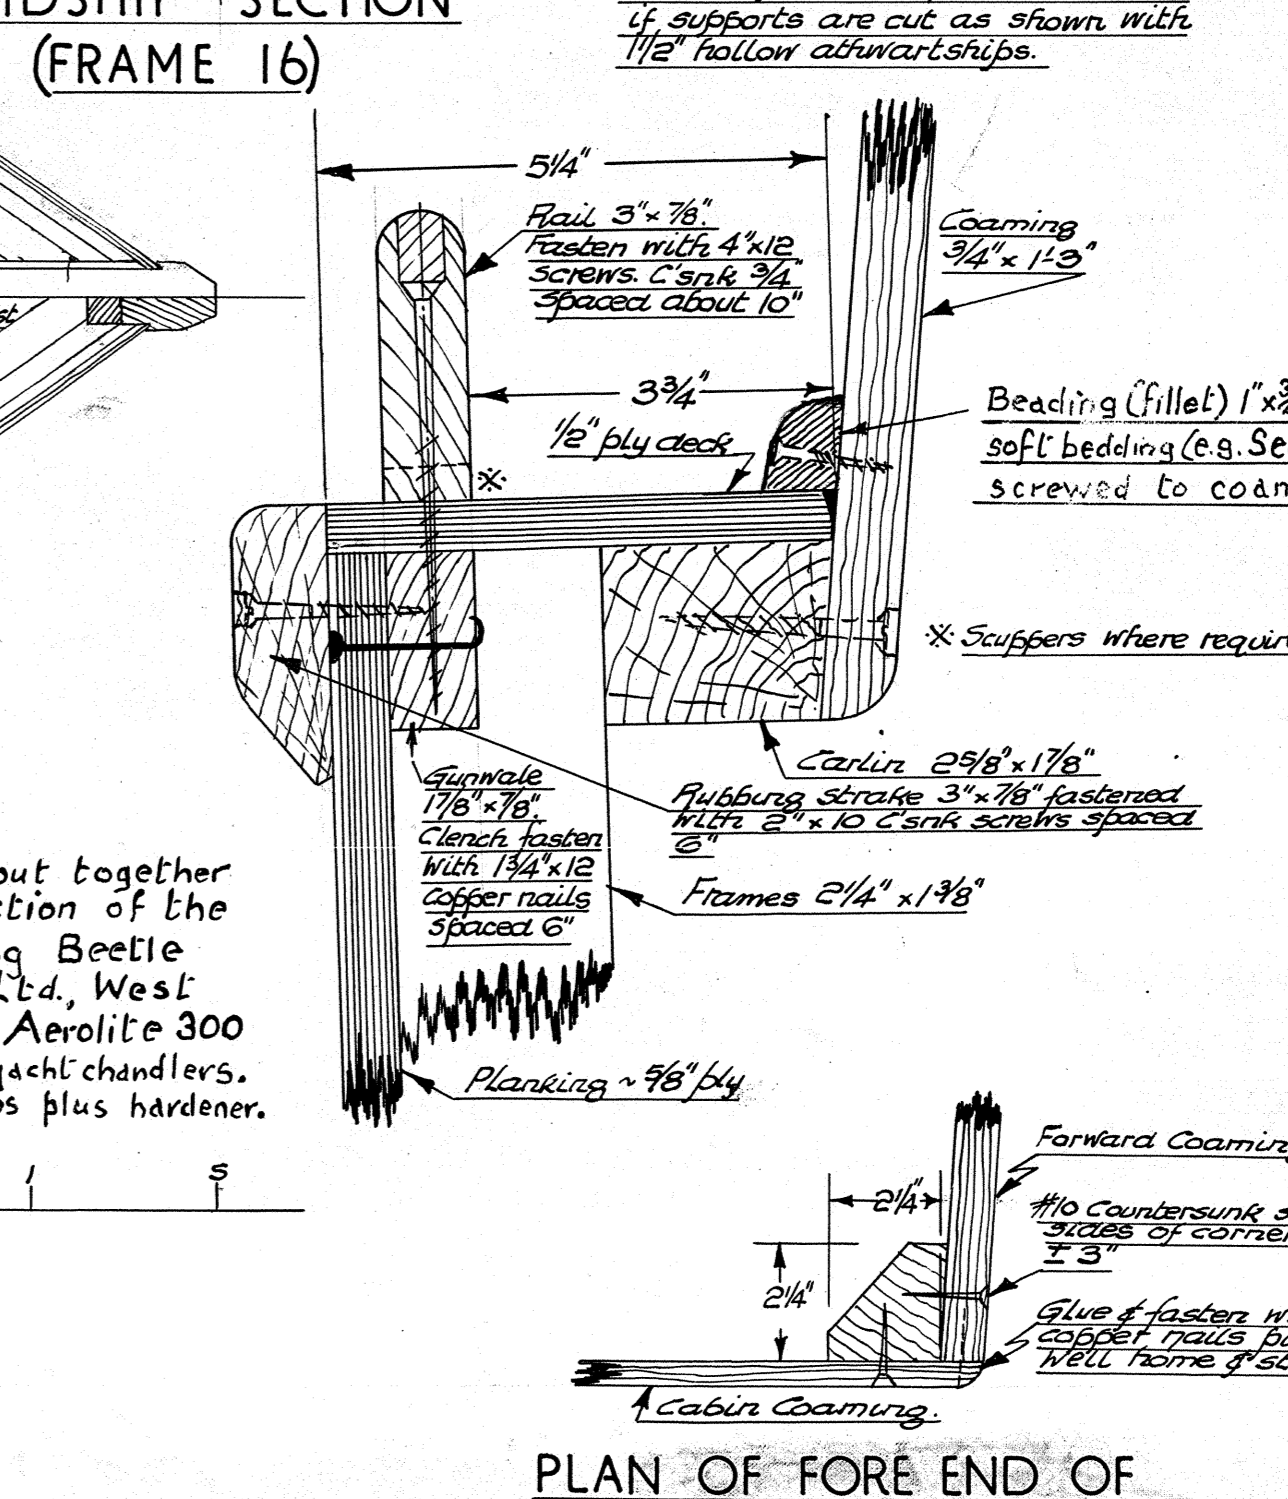 IDSHIP SECTION
(FRAME 16)
if supports are cut as shown with
1½" hollow athwartships.
5¼"
Rail 3"x 7/8".
Fasten with 4"x12
screws. C'snk 3/4"
spaced about 10"
Coaming
3/4" x 1'-3"
3¾"
½" ply deck
Beading (fillet) 1"x
soft bedding (e.g. Se
screwed to coam
※
※ Scuppers where requir
st
Carlin 2 5/8" x 1 7/8"
Gunwale
1 7/8" x 7/8".
Clench fasten
with 1¾" x 12
copper nails
spaced 6"
Rubbing strake 3" x 7/8" fastened
with 2" x 10 C'snk screws spaced
6"
Frames 2¼" x 1 3/8"
out together
ction of the
g Beetle
Ltd., West
Aerolite 300
yacht chandlers.
s plus hardener.
Planking ~ 5/8" ply
1 5
Forward Coaming
2¼"
#10 Countersunk s
sides of corner
± 3"
2¼"
Glue & fasten w
copper nails pu
well home & st
Cabin Coaming.
PLAN OF FORE END OF